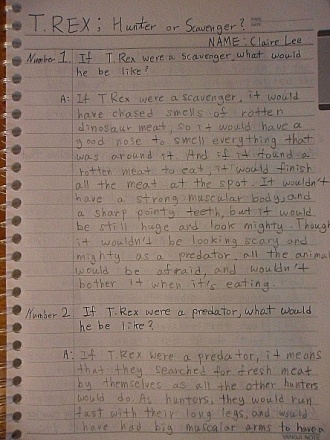 T.REX; Hunter or Scavenger?
NAME: Claire Lee
Number 1. If T.Rex were a scavenger, what would
he be like?
A: If T.Rex were a scavenger, it would
have chased smells of rotten
dinosaur meat, so it would have a
good nose to smell everything that
was around it. And if it found a
rotten meat to eat, it would finish
all the meat at the spot. It wouldn't
have a strong muscular body, and
a sharp pointy teeth, but it would
be still huge and look mighty. Though
it wouldn't be looking scary and
mighty as a predator, all the animal
would be afraid, and wouldn't
bother it when it's eating.
Number 2. If T.Rex were a predator, what would
he be like?
A: If T.Rex were a predator, it means
that they searched for fresh meat
by themselves as all the other hunters
would do. As hunters, they would run
fast with their long legs, and would
have had big muscular arms to